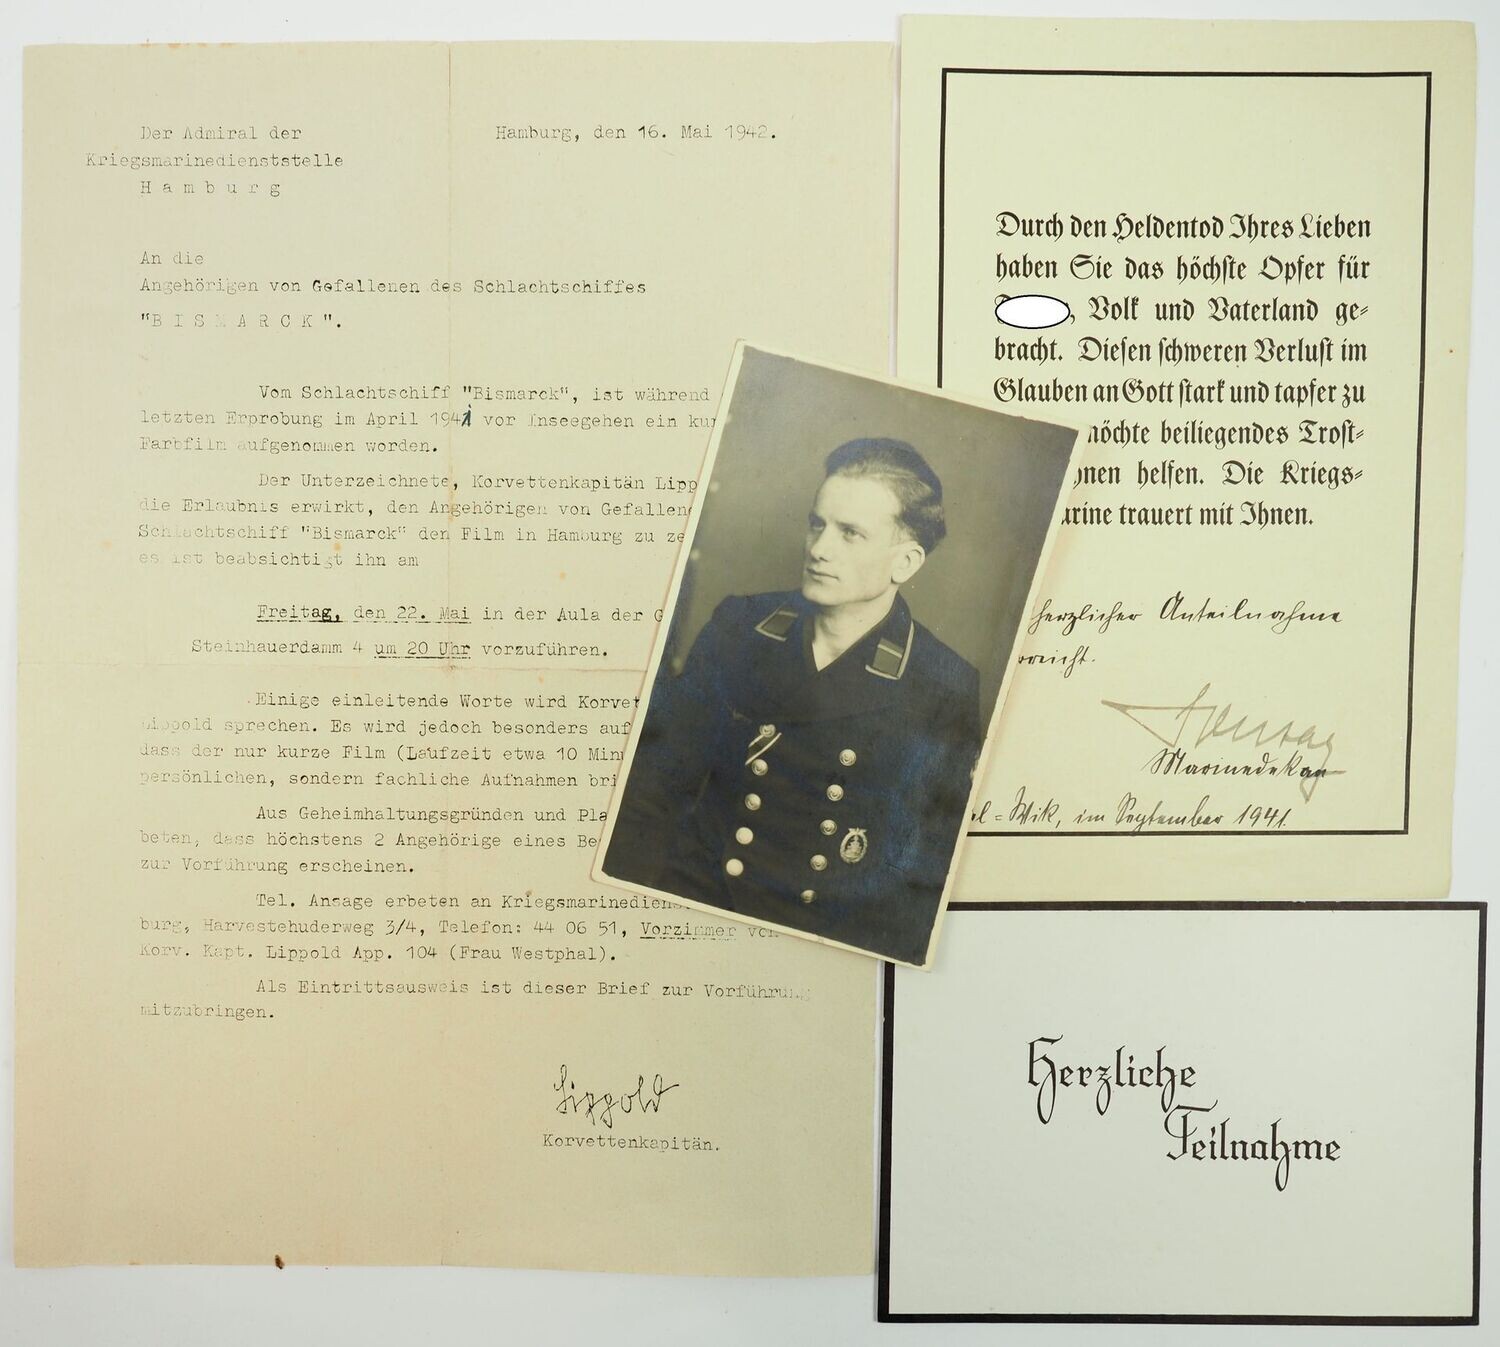 Der Admiral der
Kriegsmarinedienststelle
Hamburg
Hamburg, den 16. Mai 1942.
An die
Angehörigen von Gefallenen des Schlachtschiffes
"BISMARCK".
Vom Schlachtschiff "Bismarck", ist während
letzten Erprobung im April 1941 vor Inseegehen ein
Farbfilm aufgenommen worden.
Der Unterzeichnete, Korvettenkapitän
die Erlaubnis erwirkt, den Angehörigen von
Schlachtschiff "Bismarck" den Film in Hamburg zu
es ist beabsichtigt ihn am
Freitag, den 22. Mai in der Aula der
Steinhauerdamm 4 um 20 Uhr vorzuführen.
Einige einleitende Worte wird
Lippold sprechen. Es wird jedoch besonders
dass der nur kurze Film (Laufzeit etwa 10
persönlichen, sondern fachliche Aufnahmen
Aus Geheimhaltungsgründen und
beten, dass höchstens 2 Angehörige eines
zur Vorführung erscheinen.
Tel. Ansage erbeten an
burg, Harvestehuderweg 3/4, Telefon: 44 06 51, Vorzimmer von
Korv. Kapt. Lippold App. 104 (Frau Westphal).
Als Eintrittsausweis ist dieser Brief zur Vorführung
mitzubringen.
Lippold
Korvettenkapitän.
Durch den Heldentod Ihres Lieben
haben Sie das höchste Opfer für
, Volk und Vaterland ge-
bracht. Diesen schweren Verlust im
Glauben an Gott stark und tapfer zu
möchte beiliegendes Trost-
helfen. Die Kriegs-
trauert mit Ihnen.
herzlicher Anteilnahme
Marinedekan
Wik, im September 1941.
Herzliche
Teilnahme